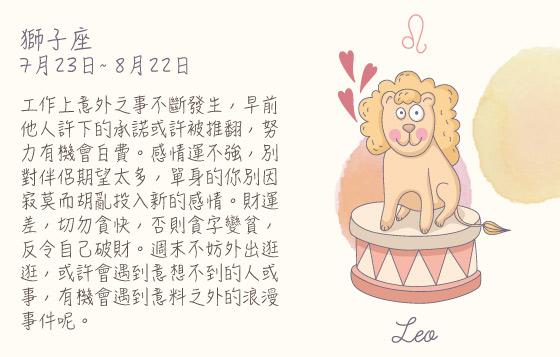 獅子座
7月23日~ 8月22日
工作上意外之事不斷發生，早前
他人許下的承諾或許被推翻，努
力有機會白費。感情運不強，別
對伴侶期望太多，單身的你別因
寂寞而胡亂投入新的感情。財運
差，切勿貪快，否則貪字變貧，
反令自己破財。週末不妨外出逛
逛，或許會遇到意想不到的人或
事，有機會遇到意料之外的浪漫
事件呢。
Leo